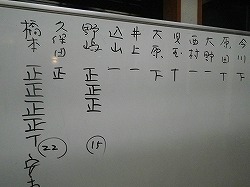 今川 下
原田 下
大野 一
西村 一
児玉 T
大原 下
井上 一
込山 一
野崎 正正正 15
久保田 正
橋本 正正正正T 22